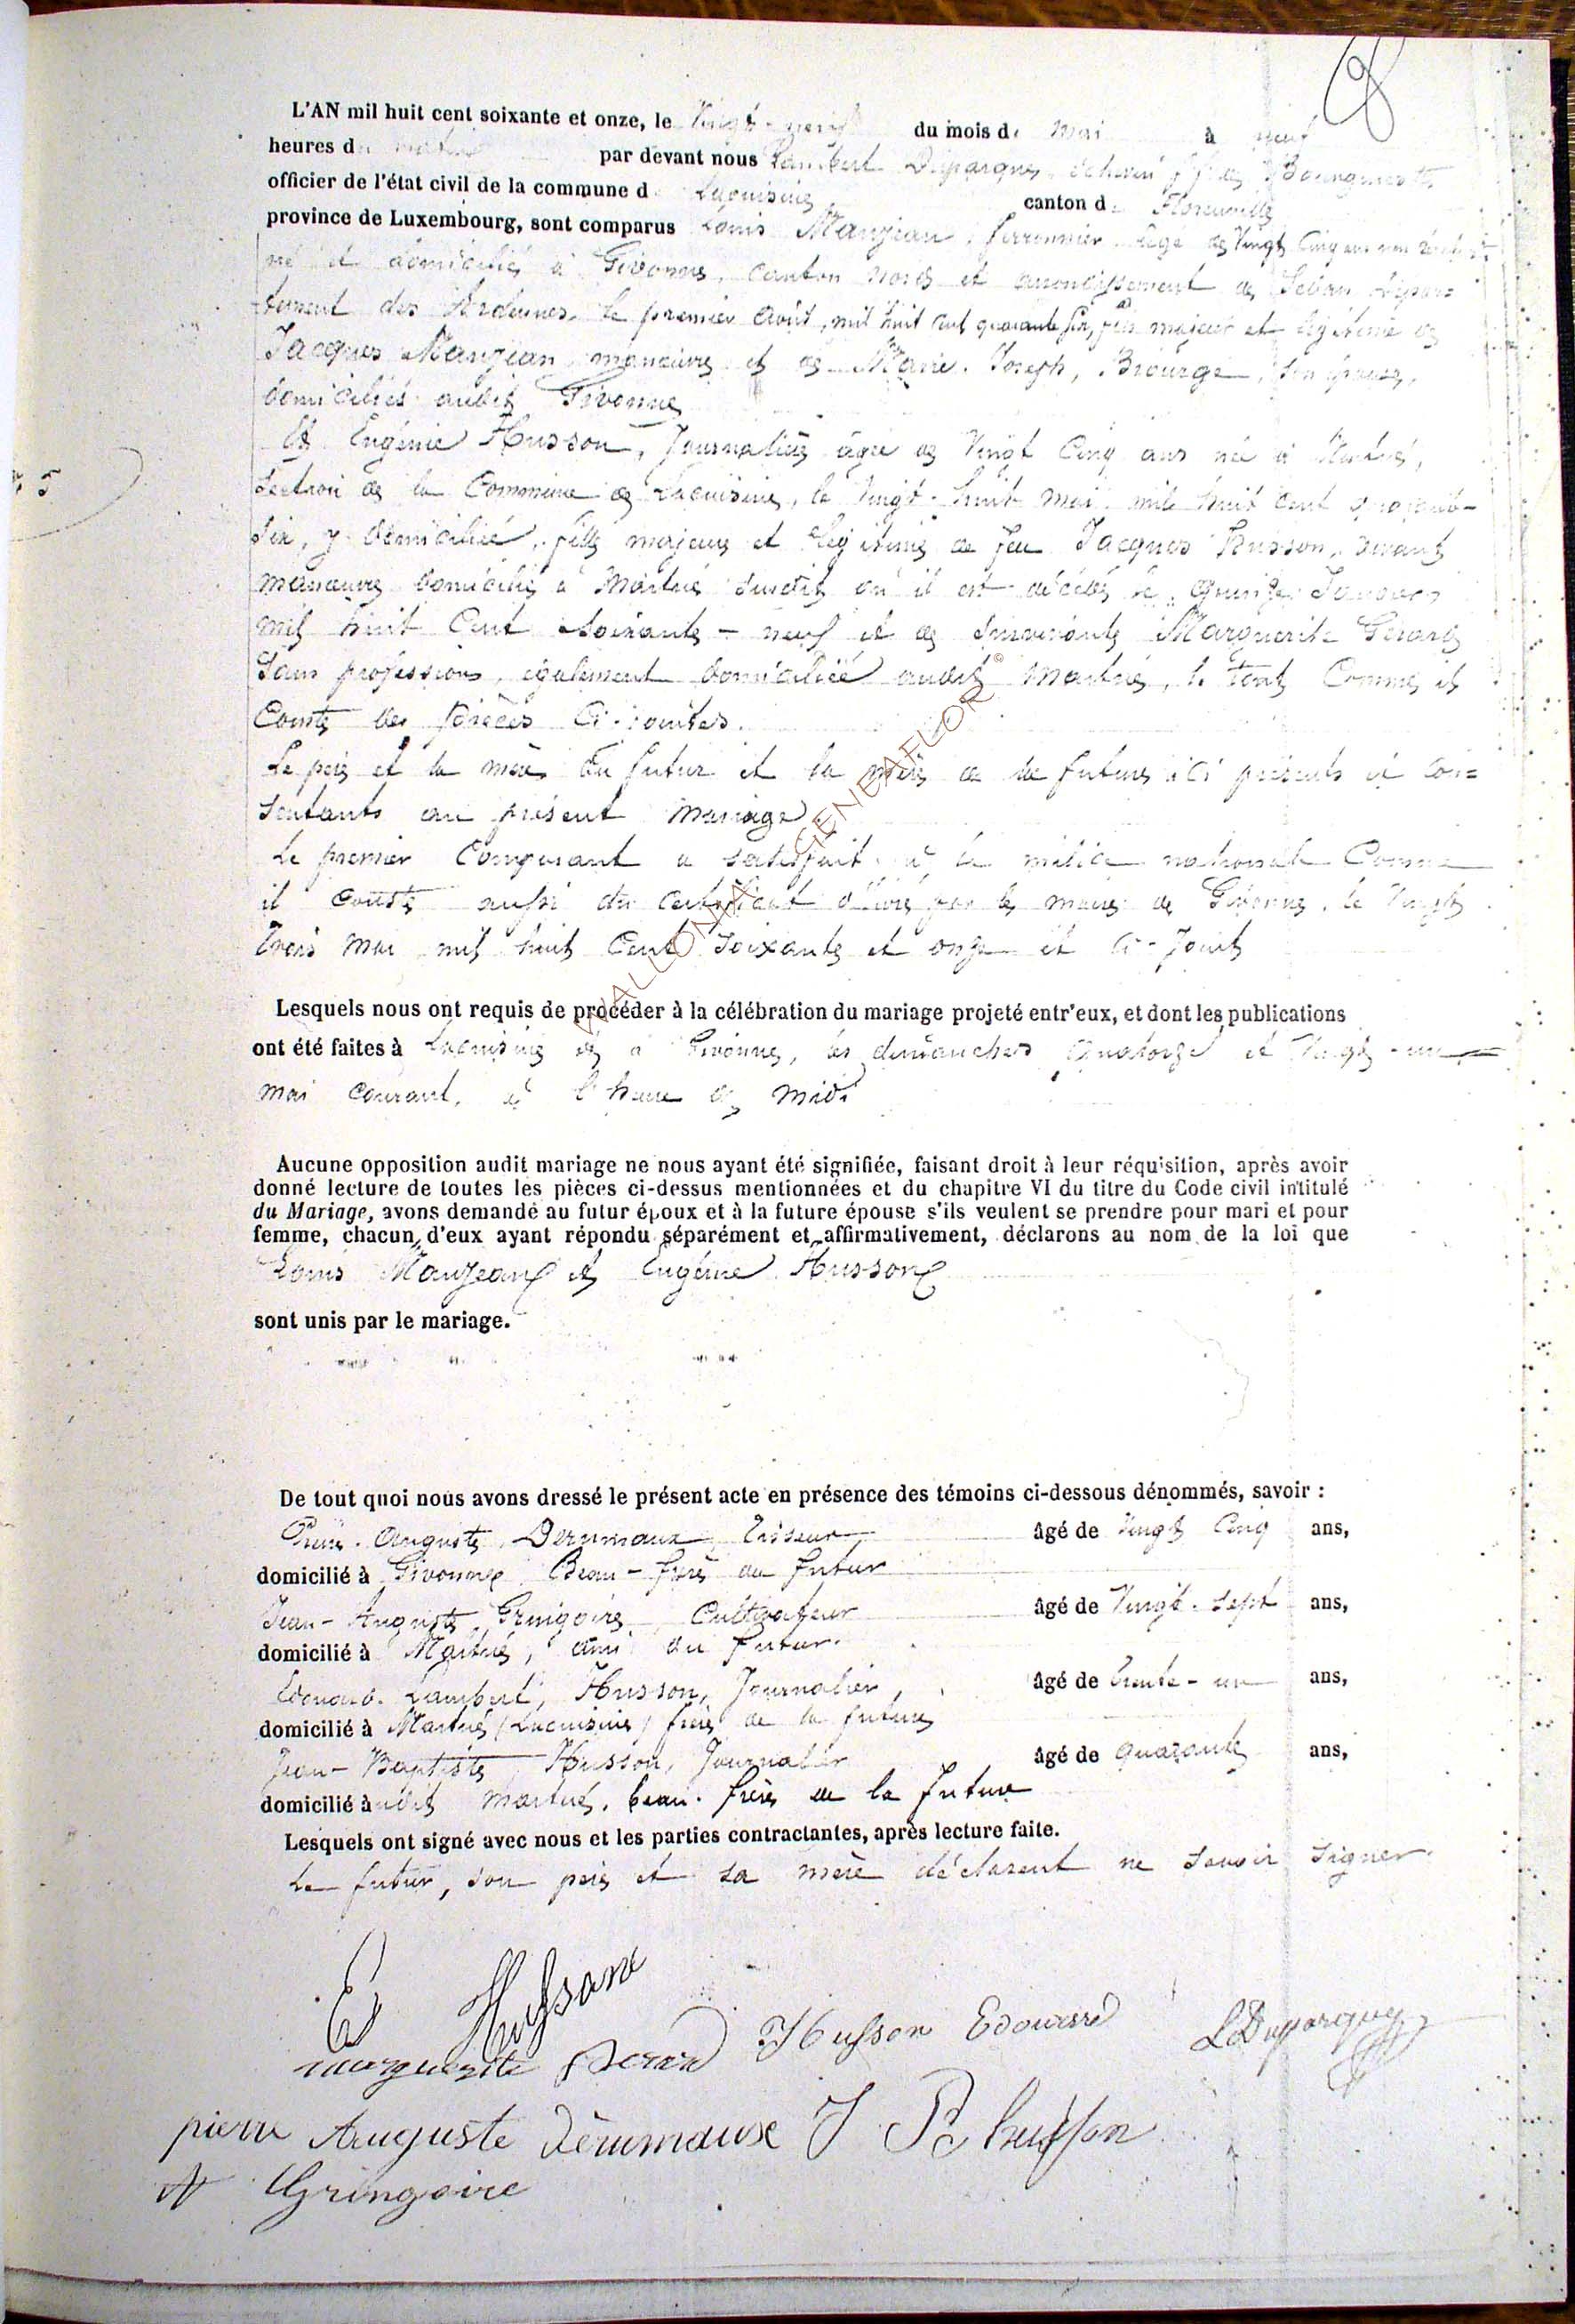 L'AN mil huit cent soixante et onze, le Vingt-neuf du mois de Mai à neuf
heures du matin par devant nous Lambert Duparque, échevin ff de Bourgmestre
officier de l'état civil de la commune de Lacuisine canton de Florenville
province de Luxembourg, sont comparus Louis Manjean, ferronnier âgé de Vingt cinq ans
né et domicilié à Givonne, Canton nord et arrondissement de Sedan dépar=
tement des Ardennes, le premier août, mil huit cent quarante six, fils majeur et légitime de
Jacques Manjean, manœuvre et de Marie-Joseph, Brourge, son épouse,
domiciliés audit Givonne
Et Eugénie Husson, Journalière âgée de Vingt Cinq ans né à Martué,
Section de la Commune de Lacuisine, le Vingt-huit mai mil huit cent quarante-
six, y domiciliée, fille majeure et légitime de feu Jacques Husson, vivant
manœuvre domicilié à Martué susdit où il est décédé le quinze Janvier
mil huit Cent soixante-neuf et de survivante Marguerite Gérard
Sans profession, également domiciliée audit Martué, le tout Comme il
Conste des pièces Ci-jointes.
Le père et la mère du futur et la mère de la future ici présents et con=
sentants au présent mariage
Le premier Comparant a satisfait à la milice nationale Comme
il conste aussi du certificat délivré par le maire de Givonne, le Vingt
trois mai mil huit Cent soixante et onze et Ci-joint
Lesquels nous ont requis de procéder à la célébration du mariage projeté entr'eux, et dont les publications
ont été faites à Lacuisine et à Givonne, les dimanches quatorze et Vingt-un
mai courant, à l'heure de midi
Aucune opposition audit mariage ne nous ayant été signifiée, faisant droit à leur réquisition, après avoir
donné lecture de toutes les pièces ci-dessus mentionnées et du chapitre VI du titre du Code civil intitulé
du Mariage, avons demandé au futur époux et à la future épouse s'ils veulent se prendre pour mari et pour
femme, chacun d'eux ayant répondu séparément et affirmativement, déclarons au nom de la loi que
Louis Manjean et Eugénie Husson
sont unis par le mariage.
De tout quoi nous avons dressé le présent acte en présence des témoins ci-dessous dénommés, savoir :
Pierre-Auguste Derumaux, Tisseur âgé de Vingt Cinq ans,
domicilié à Givonne Beau-frère du futur
Jean-Auguste Gringoire, Cultivateur âgé de Vingt-sept ans,
domicilié à Martué, ami du futur.
Edouard-Lambert, Husson, Journalier, âgé de trente-un ans,
domicilié à Martué (Lacuisine) frère de la future
Jean-Baptiste Husson, Journalier âgé de quarante ans,
domicilié àudit Martué, beau-frère de la future
Lesquels ont signé avec nous et les parties contractantes, après lecture faite.
Le futur, son père et sa mère déclarent ne savoir signer.
E Hussone
Husson Edouard
LDuparque
pierre Auguste Dèrumaux J B husson
A Gringoire
WALLONIA © GENEAFLOR